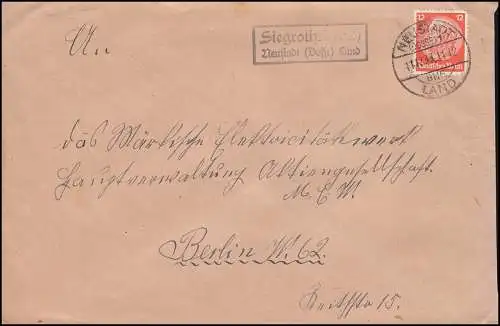 Siegroth
Neustadt (Dosse) Land
12
NEUSTADT
(DOSSE)
LAND
An
das Märkische Elektricitätswerk
Hauptverwaltung Aktiengesellschaft.
M. E. W.
Berlin W. 62.
15.